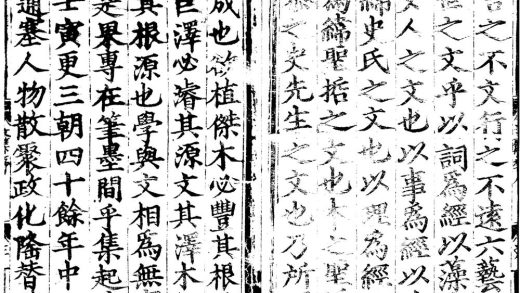 言之不文行之不遠六藝
之文乎以詞爲經以藻
文人之文也以事爲經以
緯史氏之文也以理爲經
爲緯聖哲之文也本之聖
之史先生之文也乃所
成也欲植傑木必豐其根
巨澤必濬其源文其澤木
其根源也學與文相爲無
是果專在筆墨間乎集起
壬寅更三朝四十餘年中
通塞人物散聚政化隆替